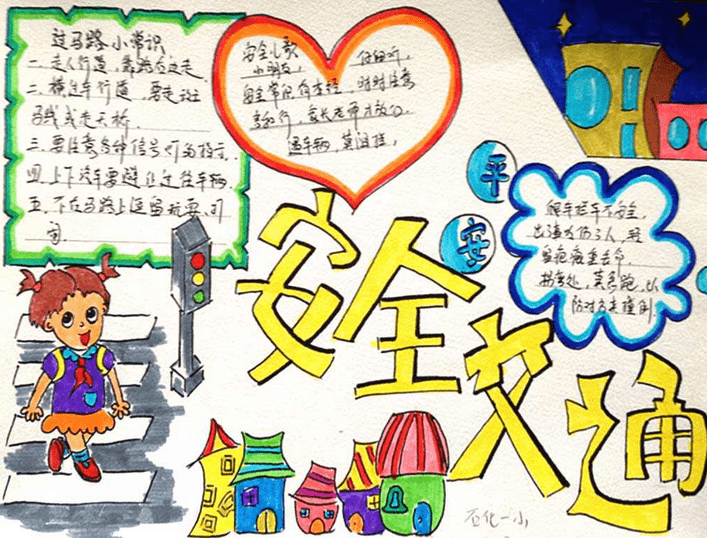 过马路小常识
一.走人行道,靠路右边走.
二.横过车行道,要走斑
马线或走天桥
三.要注意各种信号灯的指示
四.上下汽车要避让过往车辆.
五.不在马路上逗留玩耍.
安全儿歌
小朋友, 仔细听,
安全常识有本经, 时时注意
家长老师才放心.
遇车辆,莫
平
安
安全交通
爬车拦车不安全,
出
拐弯处,莫急跑,以
防对方来撞倒.
石化一小